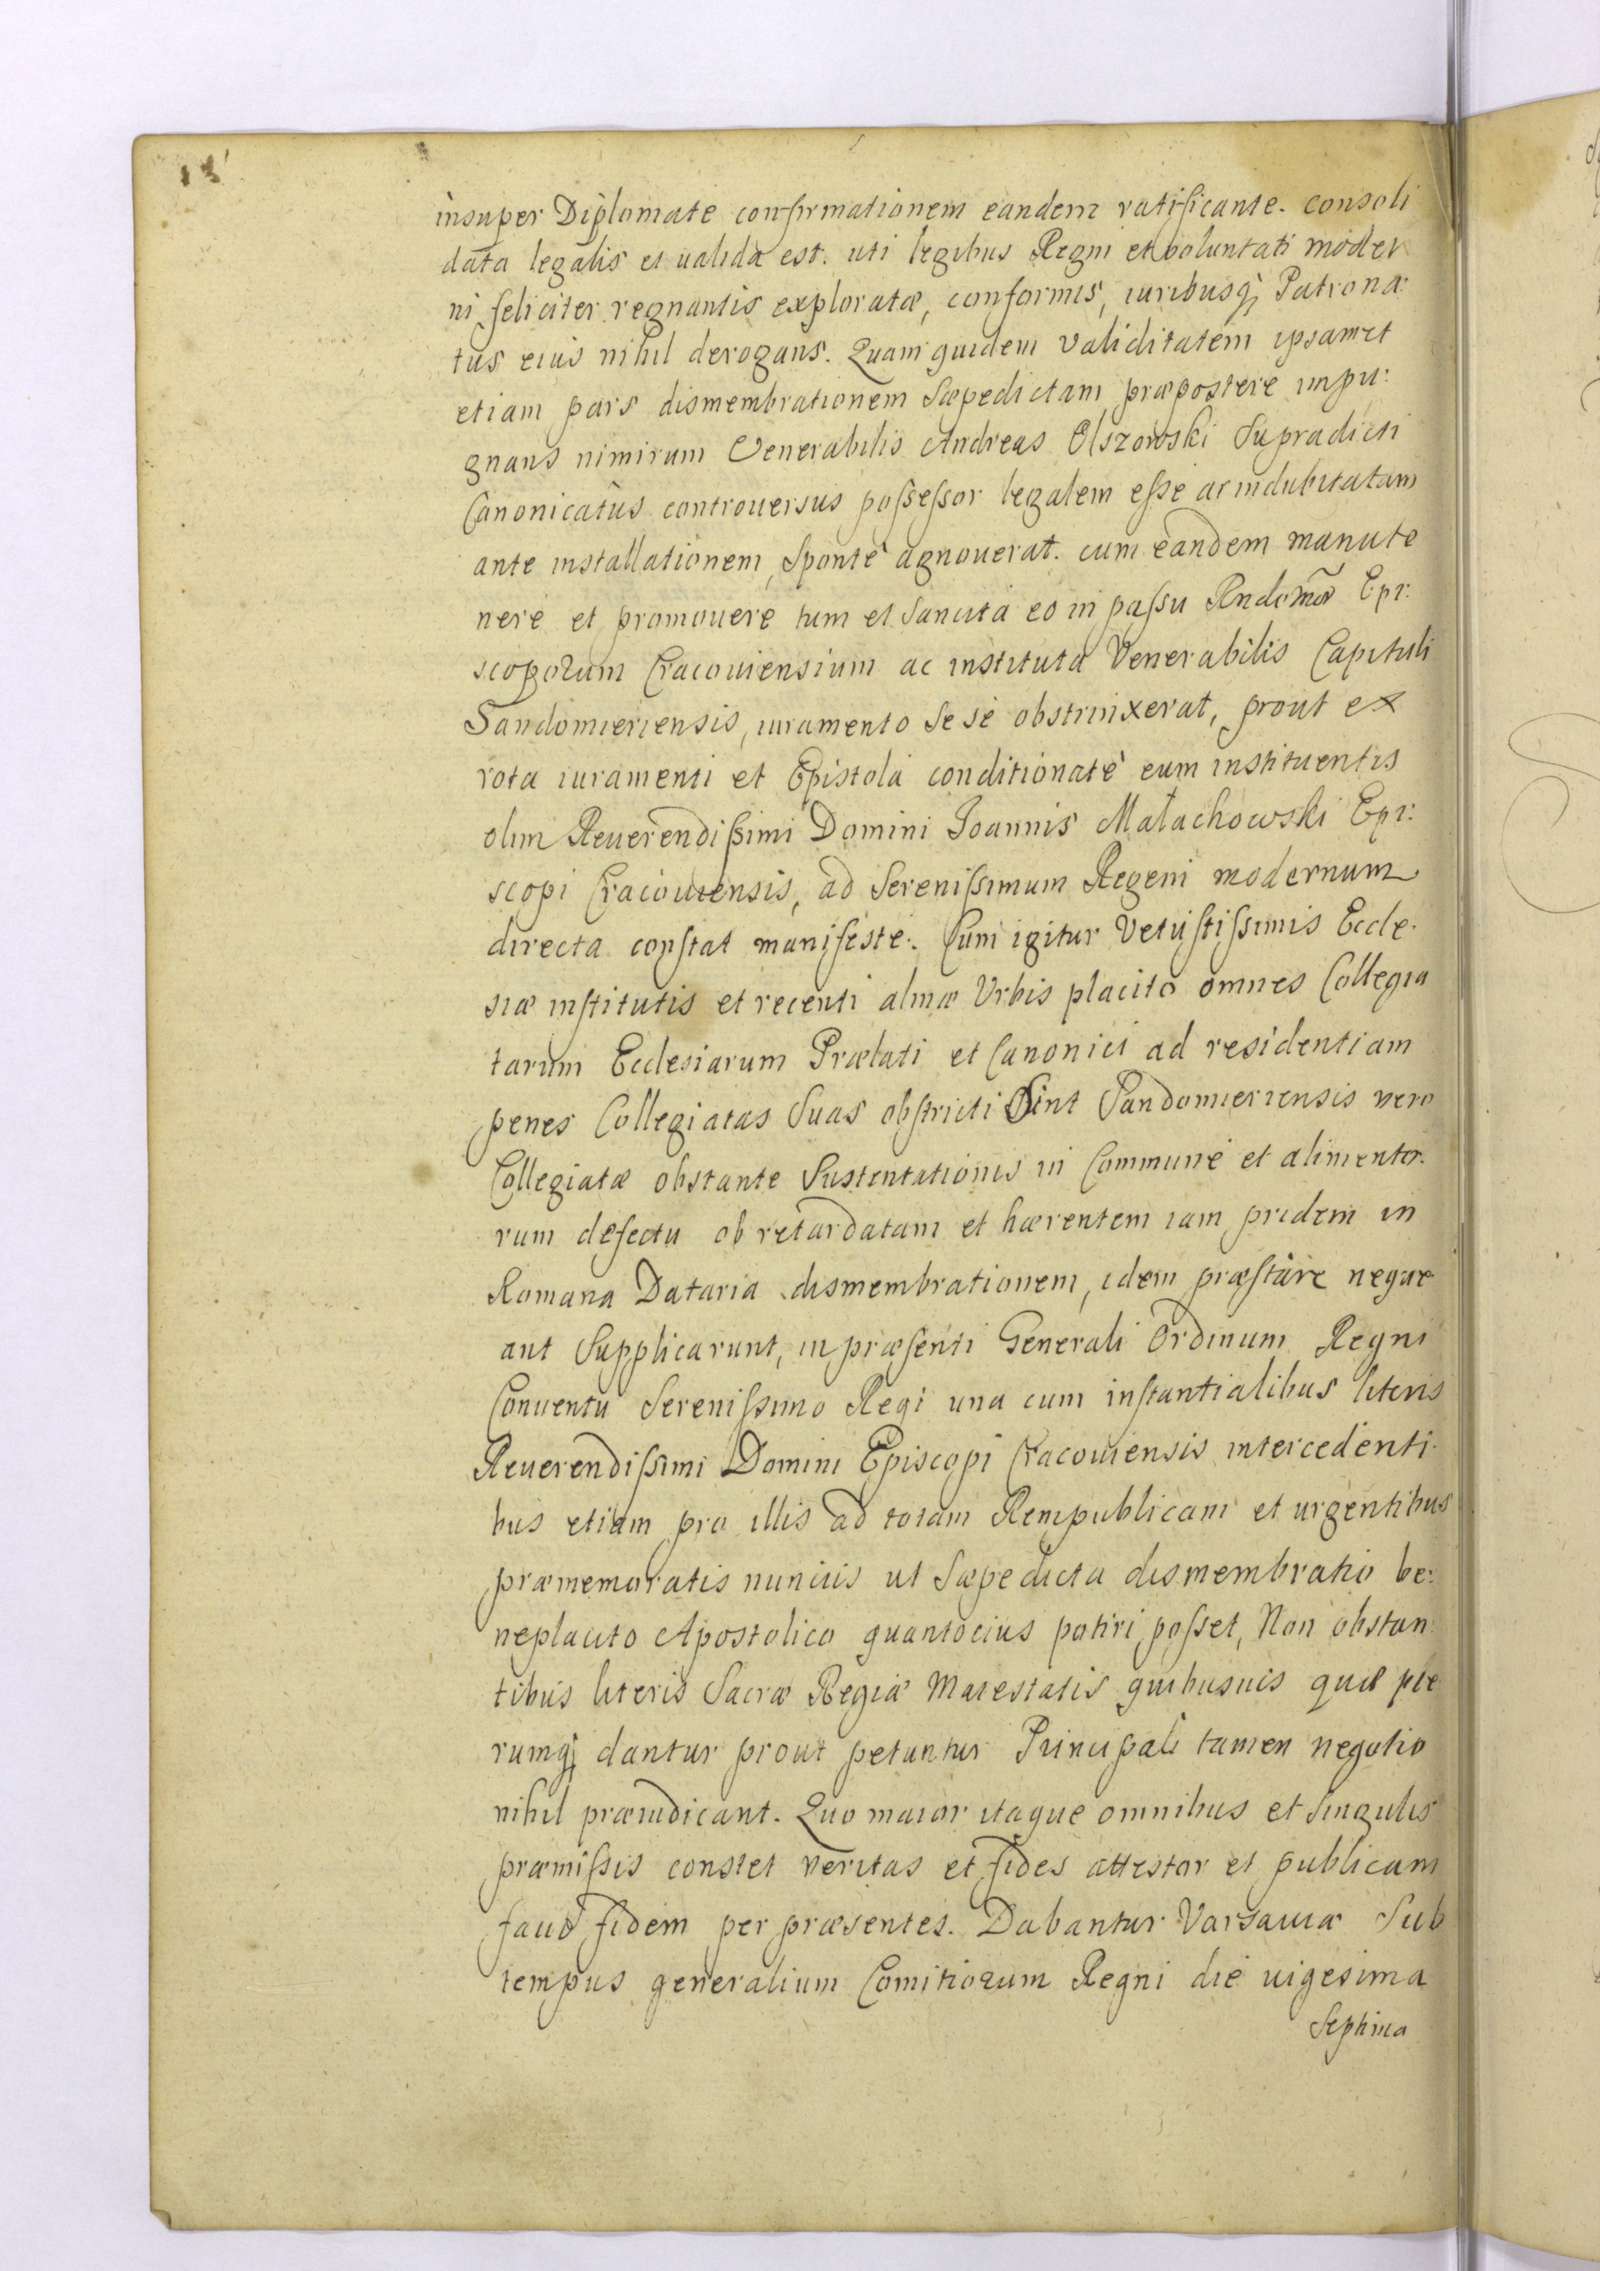 insuper Diplomate confirmationem eandem ratificante. consoli
data legalis et ualida est. uti legibus Regni et voluntati moder
ni feliciter regnantis exploratæ, conformis, iuribusq̀ Patrona:
tus eius nihil derogans. Quam quidem validitatem ipsamet
etiam pars dismembrationem sæpedictam præpostere impu:
gnans nimirum Venerabilis Andreas Olszowski Supradicti
Canonicatûs controuersus possessor legalem esse ac indubitatam
ante installationem, sponte agnouerat. cum eandem manute
nere et promouere tum et sancita eo in passu Rndomõ Epi:
scoporum Cracouiensium ac instituta Venerabilis Capituli
Sandomieriensis, iuramento se se obstrinxerat, prout ex
rota iuramenti et Epistolà conditionatè eum instituentis
olim Reuerendissimi Domini Joannis Małachowski Epi:
scopi Cracouiensis, ad Serenissimum Regem modernum
directa constat manifeste. Cum igitur vetustissimis Eccle:
siæ institutis et recenti almæ Urbis placito omnes Collegia
tarum Ecclesiarum Prælati et Canonici ad residentiam
penes Collegiatas suas obstricti Sint Sandomieriensis vero
Collegiatæ obstante Sustentationis in Commune et alimento:
rum defectu ob retardatam et hærentem iam pridem in
Romana Dataria dismembrationem, idem præstare neque
ant Supplicarunt, in præsenti Generali Ordinum Regni
Conuentu Serenissimo Regi una cum instantialibus literis
Reuerendissimi Domini Episcopi Cracouiensis intercedenti:
bus etiam pro illis ad totam Rempublicam et urgentibus
præmemoratis nunciis ut sæpedicta dismembratio be:
neplacito Apostolico quantocius potiri posset, Non obstan:
tibus literis Sacræ Regiæ Maiestatis quibusuis quæ ple
rumq̀ dantur prout petuntur Principali tamen negotio
nihil præiudicant. Quo maior itaque omnibus et singulis
præmissis constet veritas et fides attestor et publicam
facio fidem per præsentes. Dabantur Varsauiæ Sub
tempus generalium Comitiorum Regni die uigesima
Septima